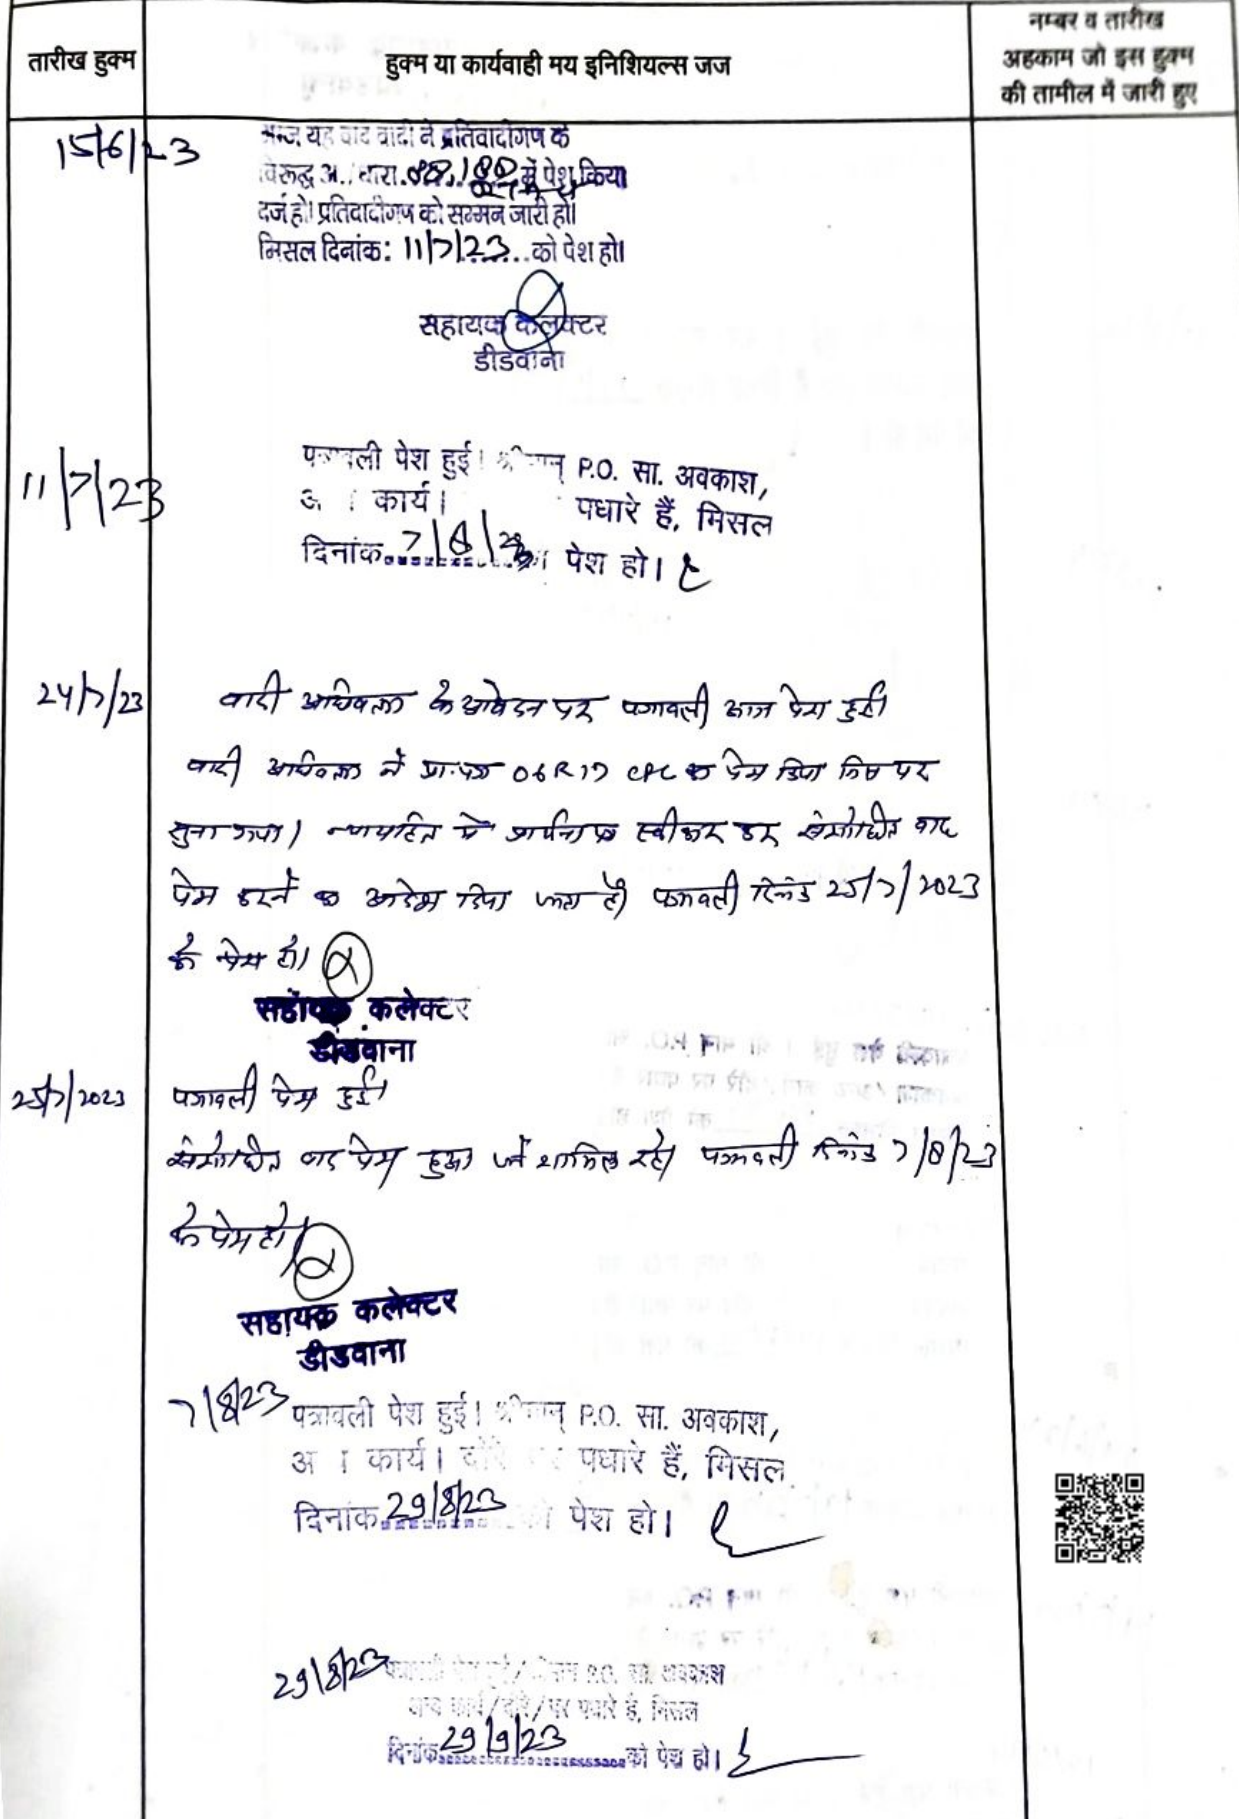 तारीख हुक्म
हुक्म या कार्यवाही मय इनिशियल्स जज
नम्बर व तारीख
अहकाम जो इस हुक्म
की तामील में जारी हुए
15/6/23
यह वाद वादी ने प्रतिवादीगण के
विरूद्ध अ. धारा 88,188 में पेश किया
दर्ज हो। प्रतिवादीगण को सम्मन जारी हो।
मिसल दिनांक: 11/7/23 को पेश हो।
सहायक कलेक्टर
डीडवाना
11/7/23
पत्रावली पेश हुई। श्रीमान् P.O. सा. अवकाश,
अ । कार्य। पधारे हैं, मिसल
दिनांक 7/8/23 को पेश हो।
24/7/23
वादी अधिवक्ता के आवेदन पर पत्रावली आज पेश हुई।
वादी अधिवक्ता ने प्रा.पत्र O6R17 CPC का पेश किया जिस पर
सुना गया। न्यायहित में प्रार्थना पत्र स्वीकार कर संशोधित वाद
पेश करने का आदेश दिया जाता है। पत्रावली दिनांक 25/7/2023
को पेश हो।
सहायक कलेक्टर
डीडवाना
25/7/2023
पत्रावली पेश हुई।
संशोधित वाद पेश हुआ शामिल रहे। पत्रावली दिनांक 7/8/23
को पेश हो।
सहायक कलेक्टर
डीडवाना
7/8/23
पत्रावली पेश हुई। श्रीमान् P.O. सा. अवकाश,
अ । कार्य। दौरे पर पधारे हैं, मिसल
दिनांक 29/8/23 को पेश हो।
29/8/23
पत्रावली पेश हुई/श्रीमान P.O. सा. अवकाश
अन्य कार्य/दौरे/पर पधारे है, मिसल
दिनांक 29/9/23 को पेश हो।